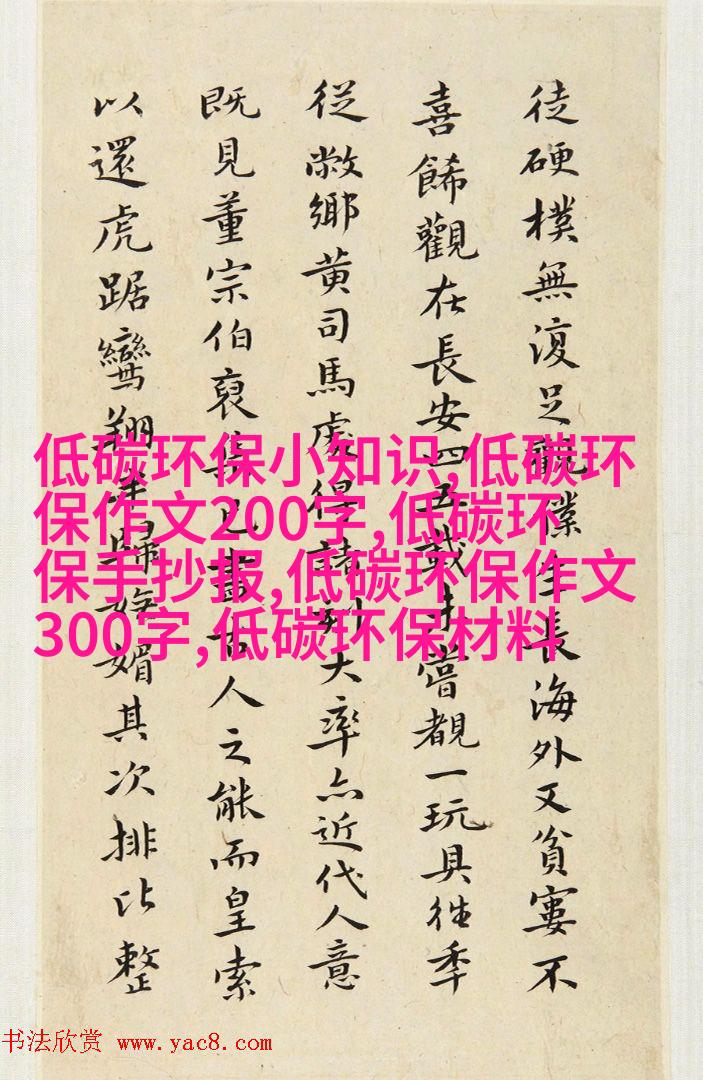 徒硬樸無復足觀僕生長海外又貧寠不
喜餙觀在長安四五載才嘗覩一玩具往季
從敝鄉黄司馬處得諸刻大率亦近代人意
既見董宗伯裒集古人之能而皇索
以還虎踞鸞翔媚其次排比整
低碳环保小知识,低碳环
保作文200字,低碳环
保手抄报,低碳环保作文
300字,低碳环保材料
书法欣赏 www.yac8.com